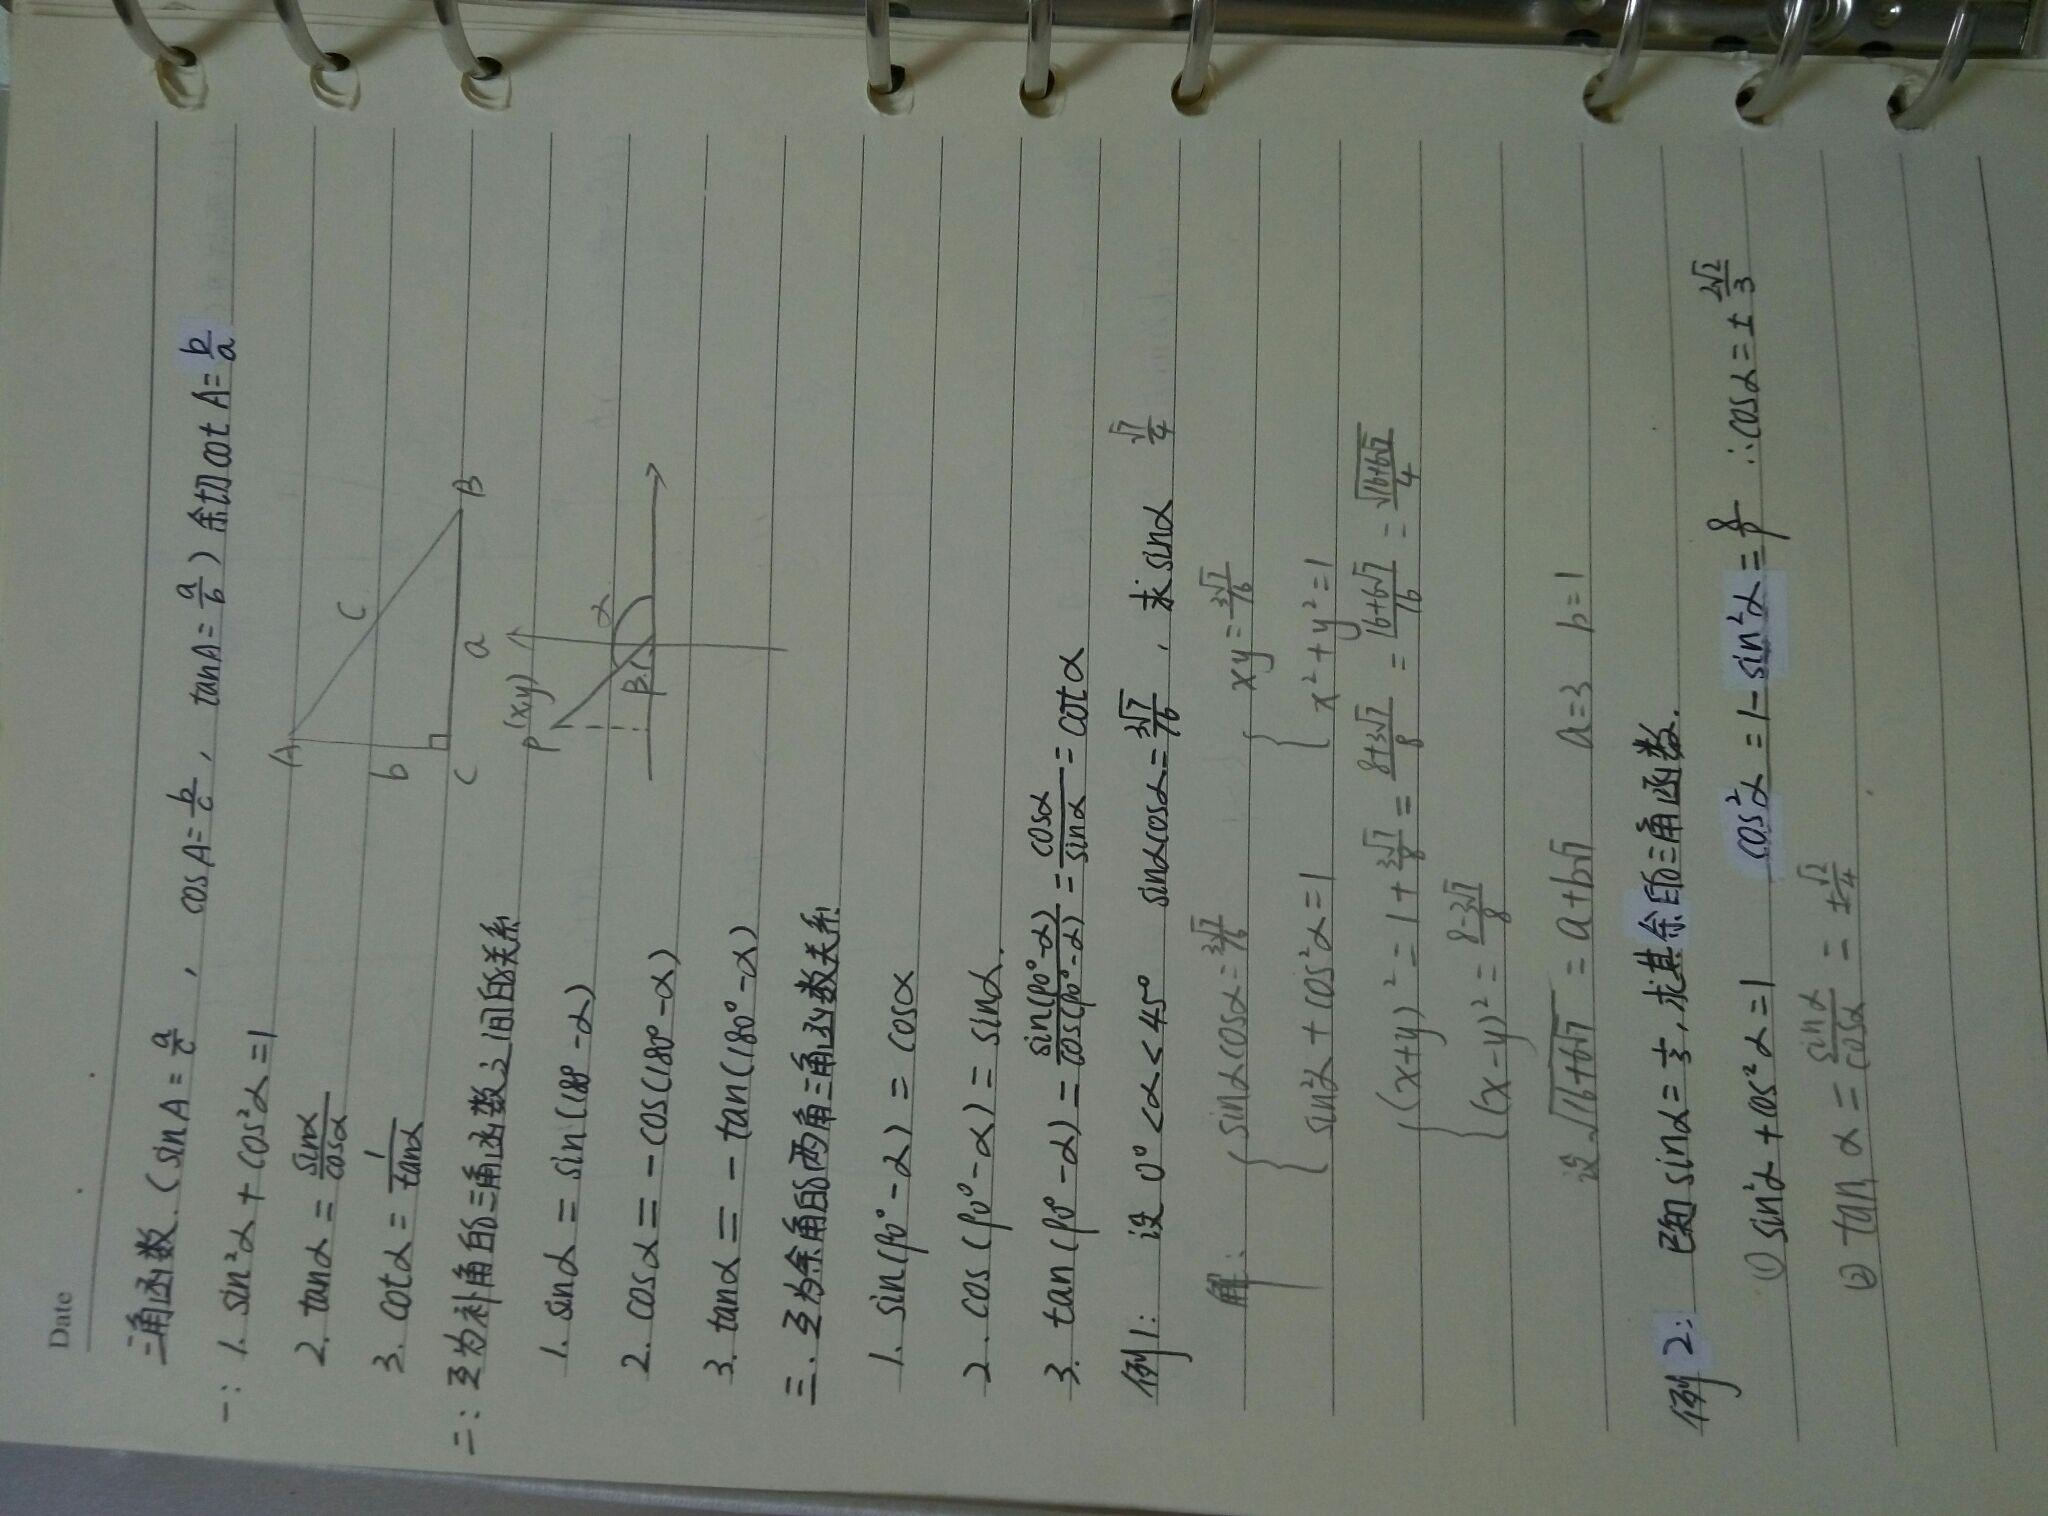 Date
三角函数.(sinA=a/c , cosA=b/c , tanA=a/b) 余切cot A=b/a
一: 1. sin²α+cos²α=1
2. tanα=sinα/cosα
3. cotα=1/tanα
A
b
C
C
a
B
二: 互为补角的三角函数之间的关系
1. sinα=sin(180°-α)
2. cosα=-cos(180°-α)
3. tanα=-tan(180°-α)
P(x,y)
β
α
三. 互为余角的两角三角函数关系.
1. sin(90°-α)=cosα
2. cos(90°-α)=sinα.
3. tan(90°-α)=sin(90°-α)/cos(90°-α)=cosα/sinα=cotα
例1: 设0°<α<45° sinαcosα=3√7/16 , 求sinα √7/4
解: { sinαcosα=3√7/16 { xy=3√7/16
sin²α+cos²α=1 x²+y²=1
{ (x+y)²=1+3√7/8=8+3√7/8=16+6√7/16=√16+6√7/4
(x-y)²=8-3√7/8
设√16+6√7=a+b√7 a=3 b=1
例2: 已知sinα=1/3, 求其余的三角函数.
① sin²α+cos²α=1 cos²α=1-sin²α=8/9 ∴cosα=±2√2/3
② tanα=sinα/cosα=±√2/4